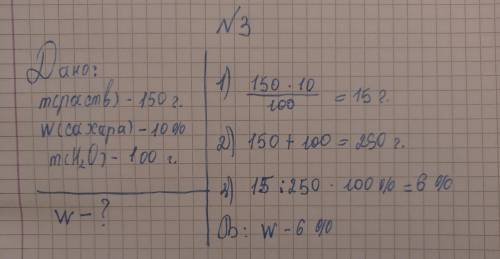 №3
Дано:
m(раств) - 150 г.
W(сахара) - 10%
m(H₂O) - 100 г.
W - ?
1) 150 · 10 / 100 = 15 г.
2) 150 + 100 = 250 г.
3) 15 : 250 · 100% = 6%
Ов: W - 6%